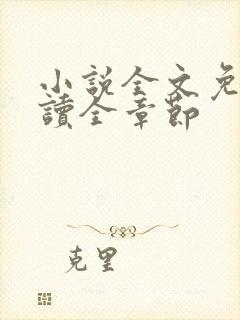 小說全文免
讀全章節
克里